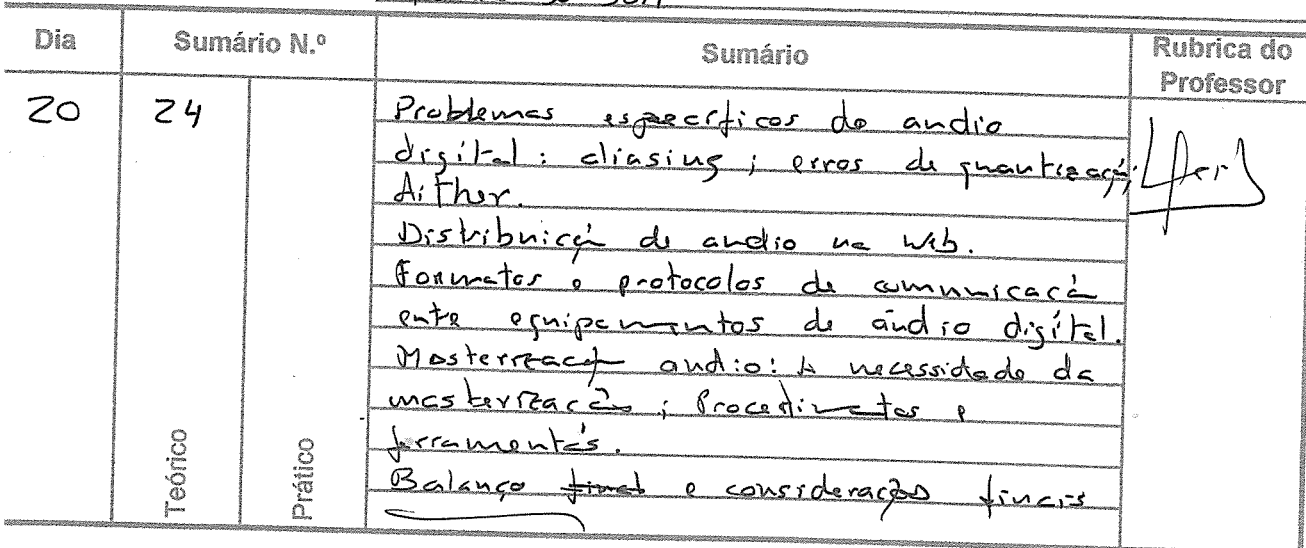 Dia Sumário N.º Sumário Rubrica do Professor
20 24 Problemas específicos do audio
digital: aliasing; erros de quantização;
Dither.
Distribuição de audio na Web.
Formatos e protocolos de comunicação
entre equipamentos de áudio digital.
Masterização audio: A necessidade da
masterização; Procedimentos e
ferramentas.
Teórico Prático
Balanço final e considerações finais